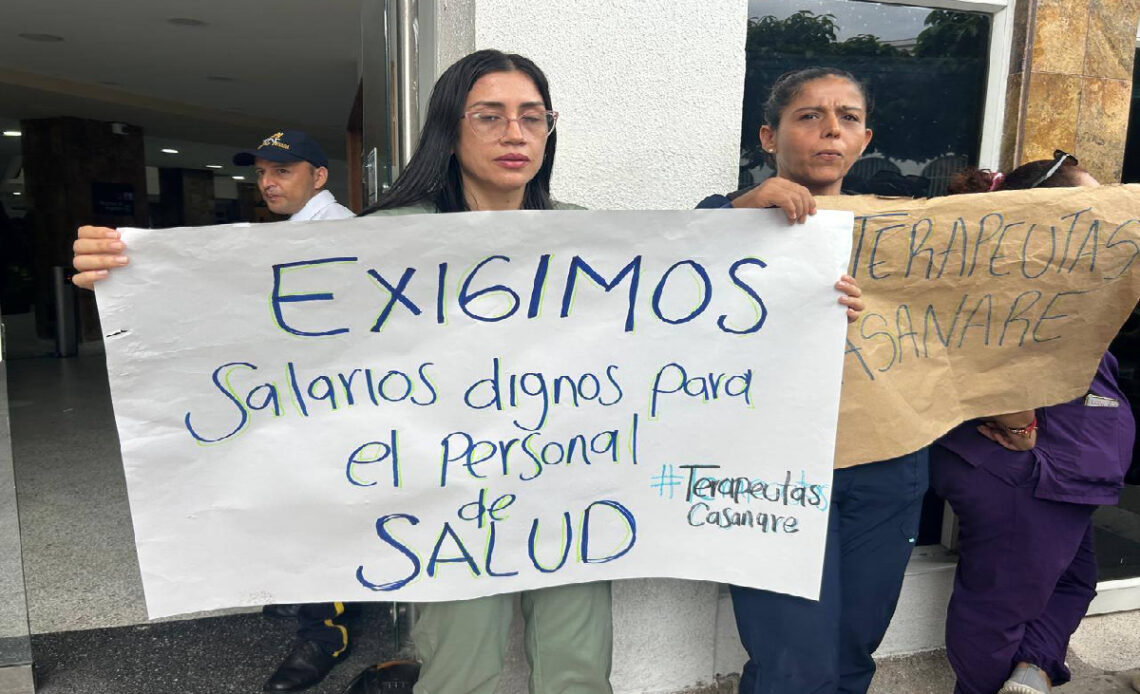 EXIGIMOS
Salarios dignos para
el personal
de
SALUD
#Terapeutas
Casanare
TERAPEUTAS
ASANARE